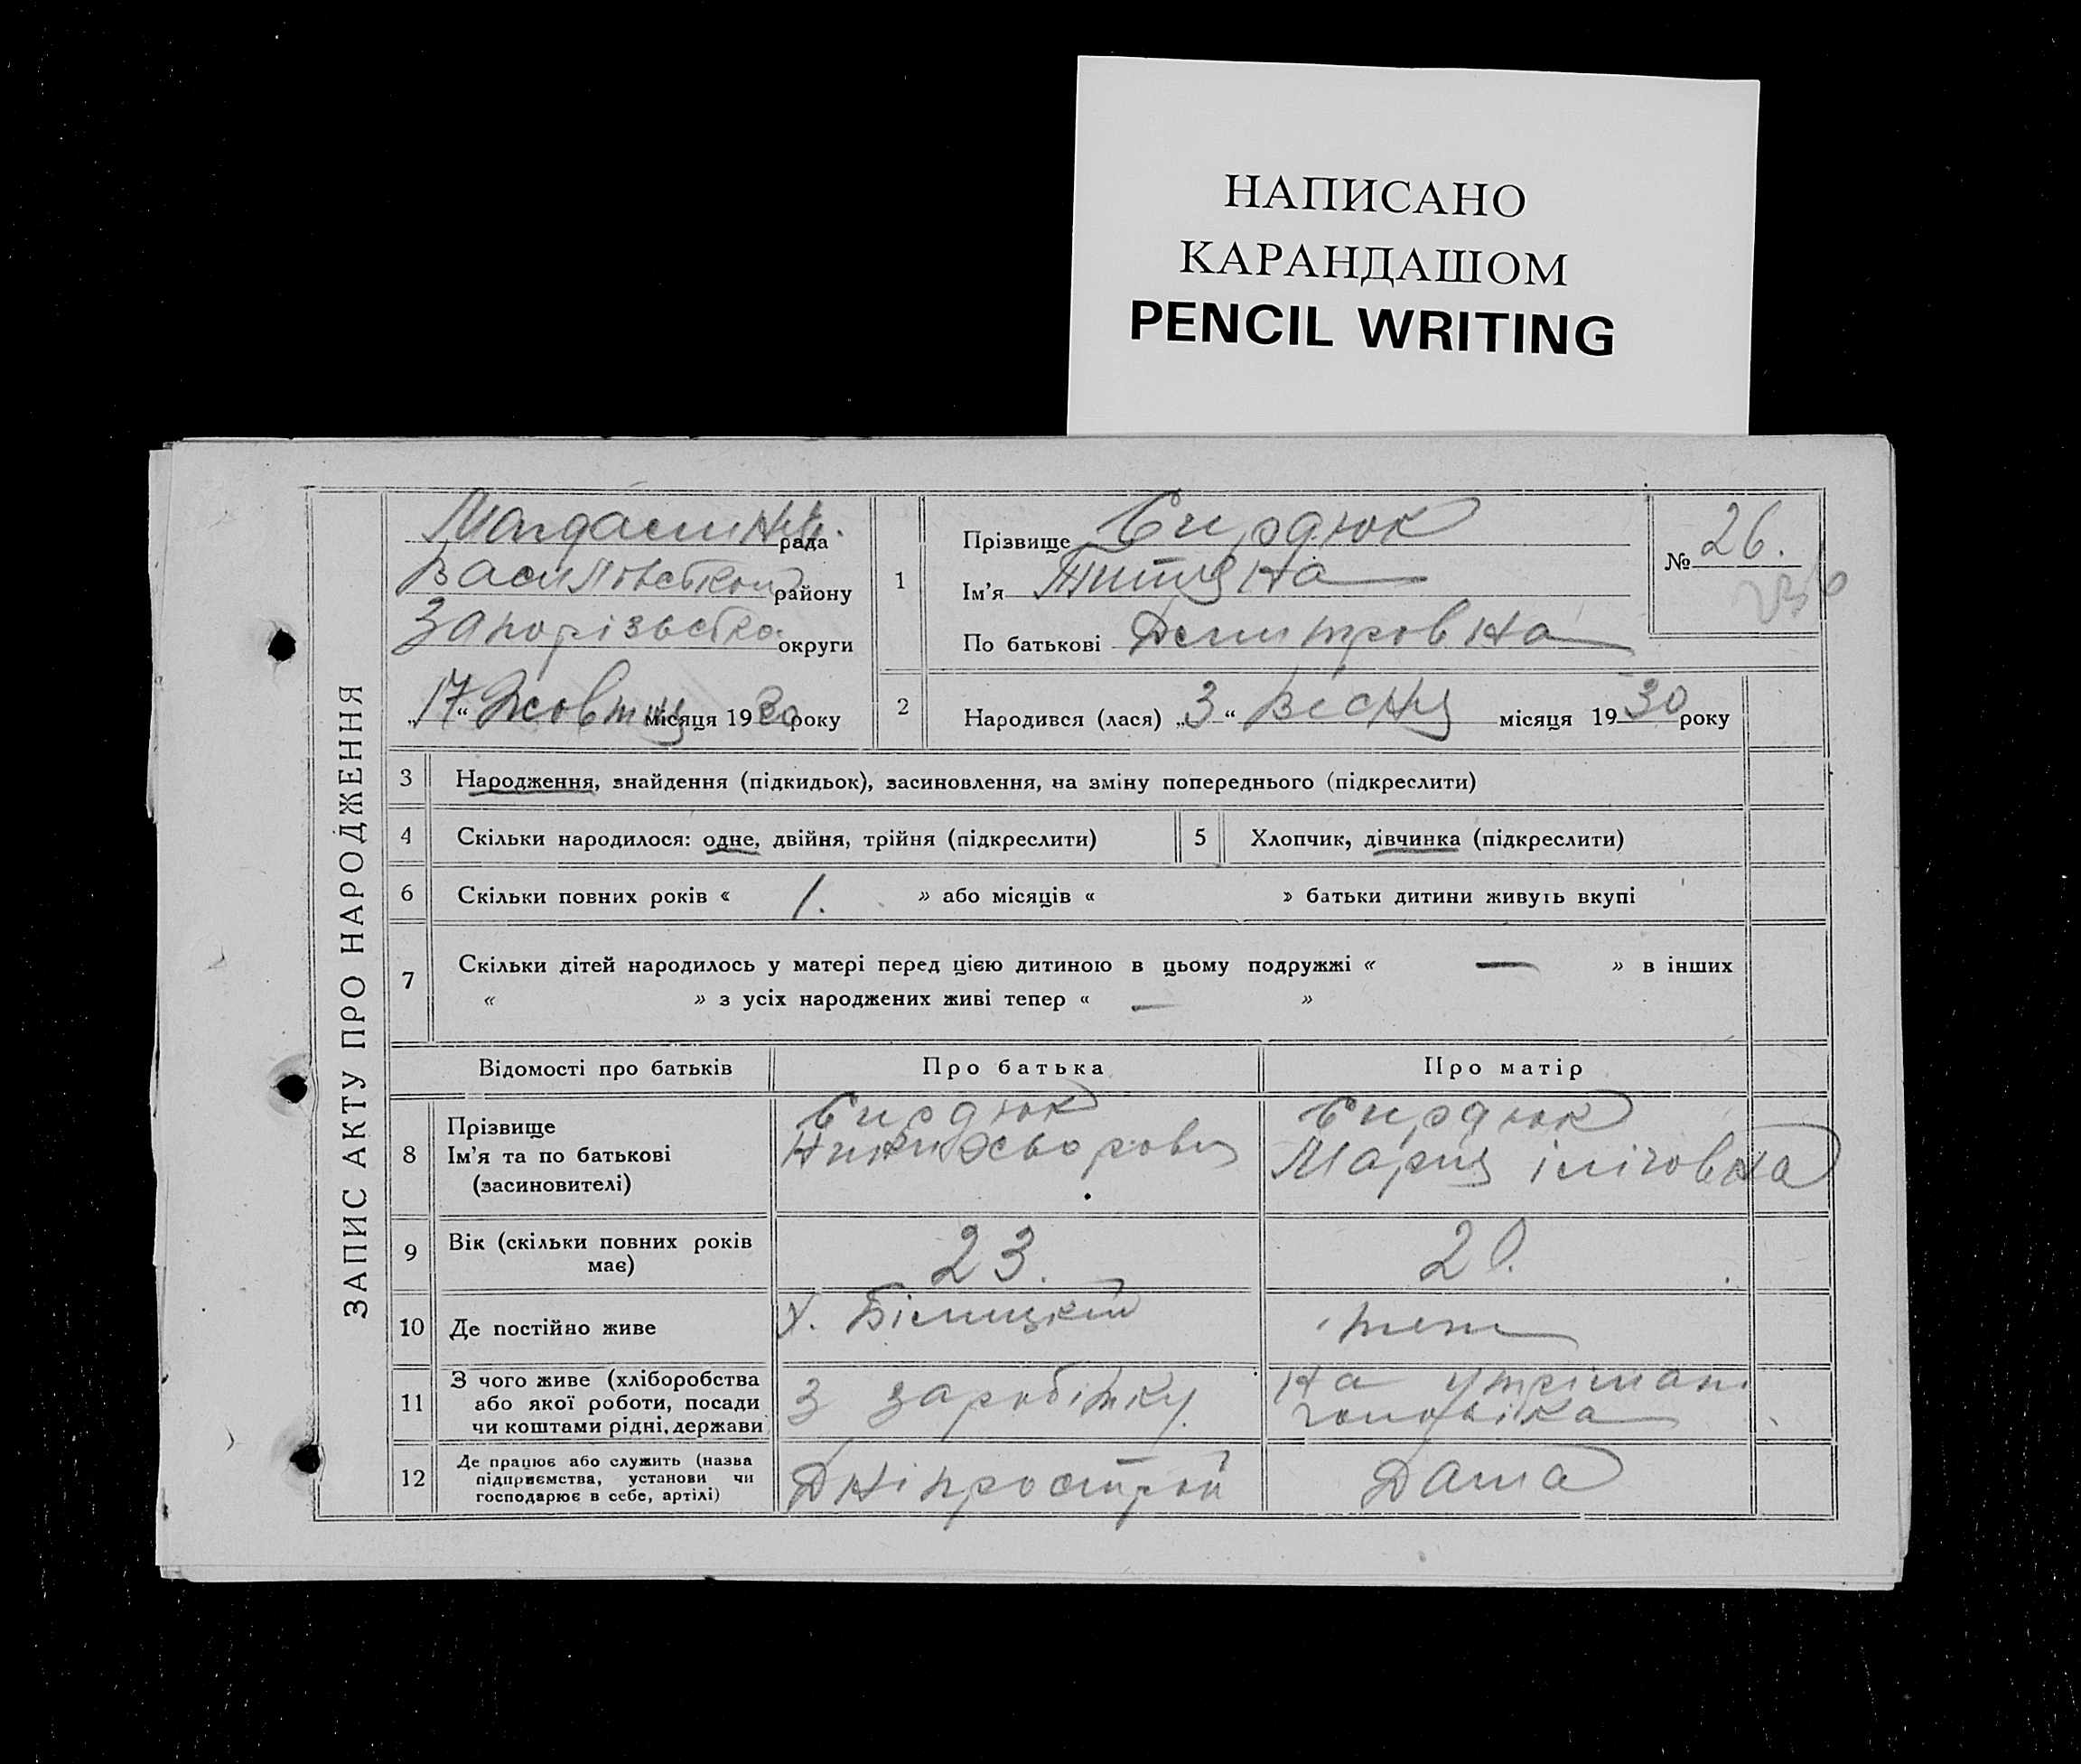 НАПИСАНО
КАРАНДАШОМ
PENCIL WRITING
ЗАПИС АКТУ ПРО НАРОДЖЕННЯ
рада
району
Запорізьско округи
„17“ Жовтня місяця 1930 року
1
Прізвище
Ім'я
По батькові Дмитровна
№ 26.
2
Народився (лася) „3“ Вісня місяця 1930 року
3 Народження, знайдення (підкидьок), засиновлення, на зміну попереднього (підкреслити)
4 Скільки народилося: одне, двійня, трійня (підкреслити)
5 Хлопчик, дівчинка (підкреслити)
6 Скільки повних років « 1. » або місяців « » батьки дитини живуть вкупі
7 Скільки дітей народилось у матері перед цією дитиною в цьому подружжі « — » в інших
« » з усіх народжених живі тепер « — »
Відомості про батьків
Про батька
Про матір
8 Прізвище
Ім'я та по батькові
(засиновителі)
Мария
9 Вік (скільки повних років
має)
23.
20.
10 Де постійно живе
Х.
теж
11 З чого живе (хліборобства
або якої роботи, посади
чи коштами рідні, держави
З заробітку
на утрімані
чоловіка
12 Де працює або служить (назва
підприємства, установи чи
господарює в себе, артілі)
Дніпрострой
Дома